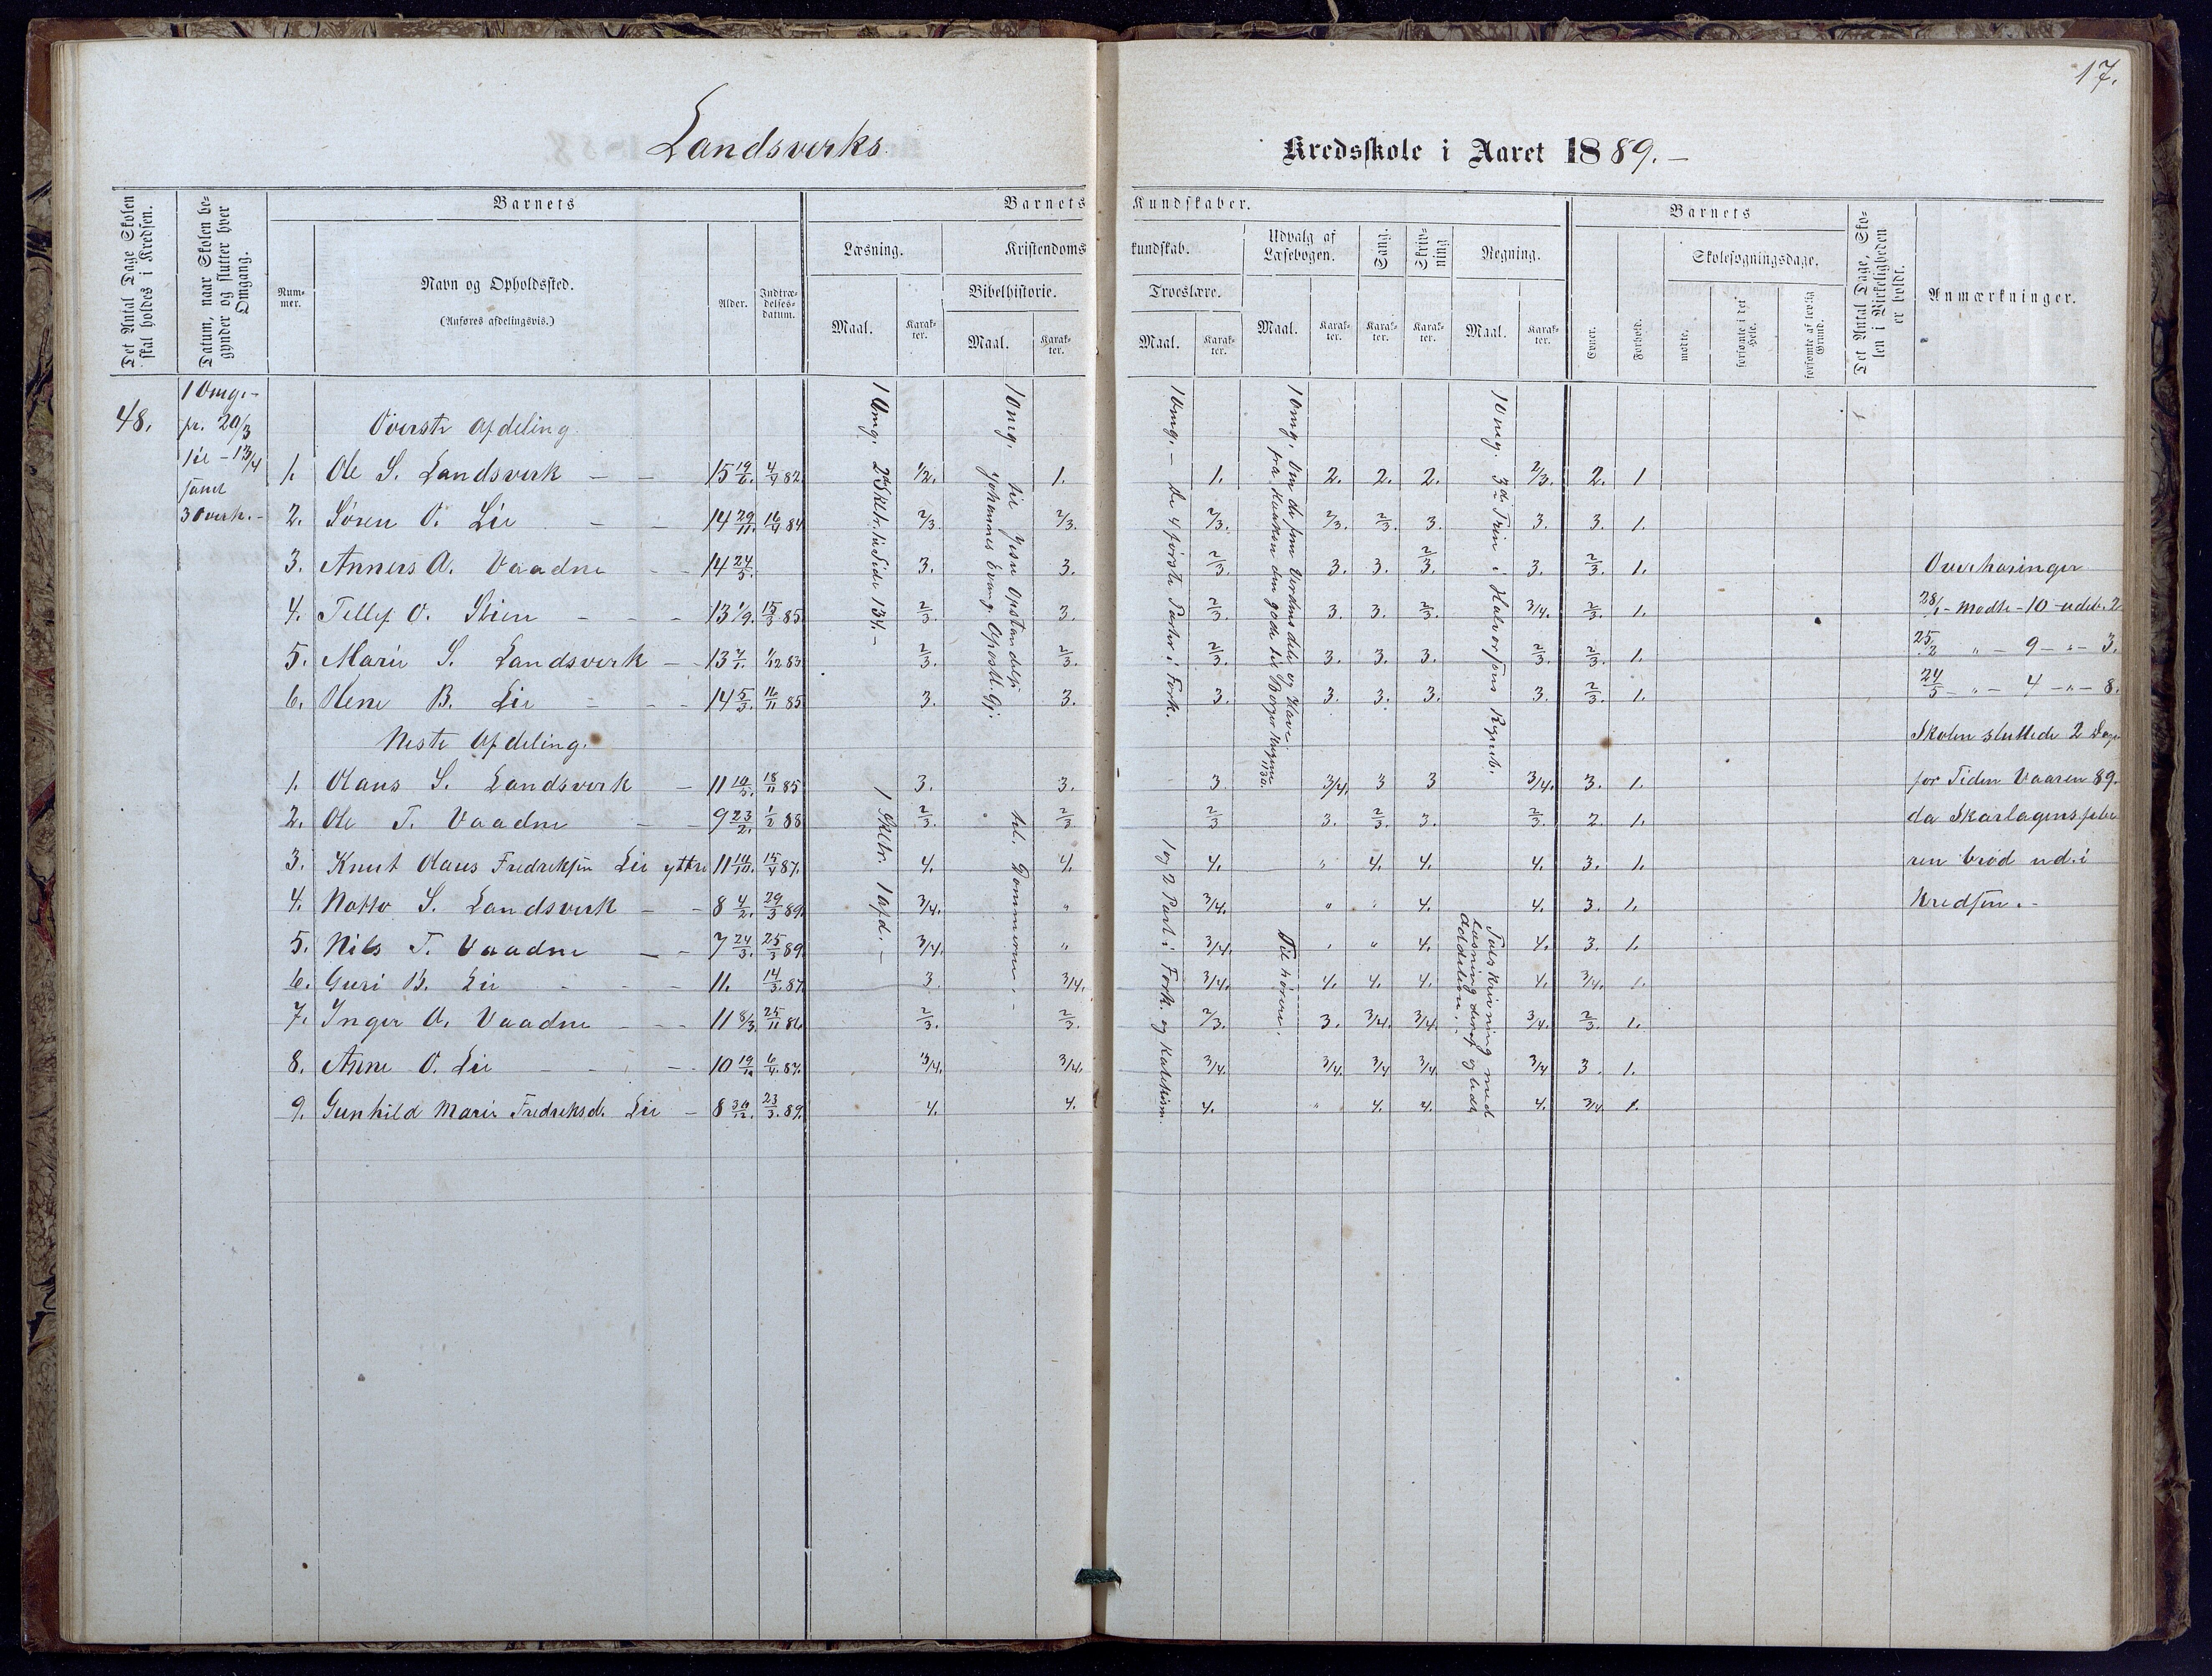 17.
Landsverks
Kredsskole i Aaret 1889.-
Det Antal Dage Skolen skal holdes i Kredsen.
Datum, naar Skolen begynder og slutter hver Omgang.
Barnets
Barnets Kundskaber.
Barnets
Det Antal Dage, Skolen i Virkeligheden er holdt.
Anmærkninger.
Nummer.
Navn og Opholdssted.
(Anføres afdelingsvis.)
Alder.
Indtrædelses-datum.
Læsning.
Kristendomskundskab.
Udvalg af Læsebogen.
Sang.
Skrivning
Regning.
Evner.
Forhold.
Skolesøgningsdage.
Bibelhistorie.
Troeslære.
Maal. Karakter. Maal. Karakter. Maal. Karakter. Maal. Karakter. Karakter. Karakter. Maal. Karakter.
mødte.
forsømte i det Hele.
forsømte af lovlig Grund.
48.
1 Omg.-
fr. 20/3
til - 13/4
samt
3 overh.-
Øverste Afdeling
1. Ole S. Landsverk 15 19/6. 4/4 82. 1/2. 1. 1. 2. 2. 2. 2/3. 2. 1
2. Søren O. Lie 14 29/11. 16/4 84 2/3. 2/3. 2/3. 2/3. 2/3. 3. 3. 3. 1.
3. Anners A. Vaadne 14 24/5. 3. 3. 2/3. 3. 3. 2/3. 3. 2/3. 1.
4. Tellef O. Stien 13 1/9. 15/3 85. 2/3. 3. 2/3. 3. 3. 2/3. 3/4. 2/3. 1.
5. Marie S. Landsverk 13 7/1. 1/12 83 2/3. 2/3. 2/3. 3. 3. 3. 2/3. 2/3. 1.
6. Olene B. Lie 14 5/3. 16/11 85 3. 3. 3. 3. 3. 3. 3. 2/3. 1.
Neste Afdeling.
1. Olaus S. Landsverk 11 10/5. 18/11 85 3. 3. 3 3/4. 3 3 3/4. 3. 1.
2. Ole T. Vaadne 9 23/2. 1/2 88 2/3. 2/3 2/3 3. 2/3. 3. 2/3. 2. 1.
3. Knut Olaus Fredriksen Lie yttre 11 14/10. 15/4 87. 4. 4. 4. " 4. 4. 4. 3. 1.
4. Notto S. Landsverk 8 4/2. 29/3 89. 3/4. " 3/4. " " 4. 4. 3. 1.
5. Nils T. Vaadne 7 24/3. 25/3 89. 3/4. " 3/4. " " 4. 4. 3. 1.
6. Guri B. Lie 11. 14/3. 87. 3. 3/4. 3/4. 4. 4. 4. 4. 3/4. 1.
7. Inger A. Vaadne 11 8/3. 25/11 86. 2/3. 2/3. 2/3. 3. 3/4. 3/4. 3/4. 2/3. 1.
8. Anne O. Lie 10 19/10 6/4. 87. 3/4. 3/4. 3/4. 3/4. 3/4 3/4 3/4 3. 1.
9. Gunhild Marie Fredriksd. Lie 8 30/12. 23/3. 89. 4. 4. 4. " 4. 4. 4. 3/4. 1.
1 Omg. 2den Skltr. til Side 134.-
1 Skltr. 1 afd.-
1 Omg. til Jesu Opstandelse
Johannes Evang. Apostl. Gj.
til Dommerne.-
1 Omg.- De 4 første Parter i Fork.
1 og 2 Part i Fork. og Katekism.
1 Omg. Om de fem Verdens dele og Havene
Tilhørere.
1 Omg. 3die Trin i Halvorsens Regneb.
Talskrivning med
Læsning deraf og lidt
Addition.-
Overhøringer
28/1- mødte - 10 - udeb. 2
25/2 " - 9 - " - 3.
24/5 - " - 4 - " - 8.
Skolen sluttede 2 Dage
før Tiden Vaaren 89.
da Skarlagensfebe
ren brød ud i
Kredsen.-